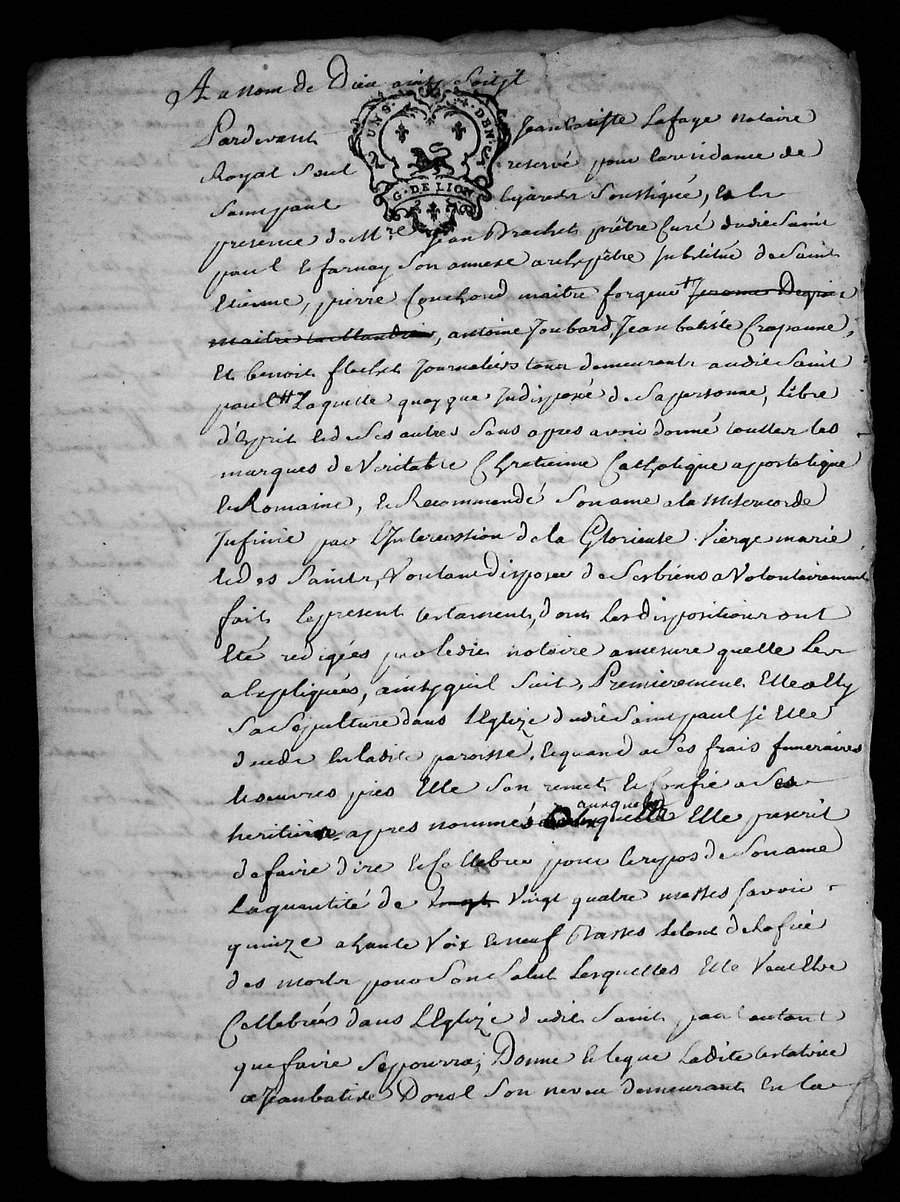 Au nom de Dieu ainsy soit jl
Pardevant Jean batiste Lafaye notaire
UN S. 4. DEN.
G. DE LION
Royal Seul reservé pour la residance de
Saint paul en jarets Soussigné, Et en la
presence de Mre Jean Brachet prêtre Curé dudit Saint
paul et farnay Son annexe archiprêtre Substitué de Saint
Etienne, pierre Couchoud maitre forgeur
maitre taillandier, antoine Joubard, Jean batiste Crapanne,
Et benoit flachet Journaliers tous demeurants audit Saint
paul Laquelle quoyque Indisposée de Sa personne, Libre
d'Esprit et de Ses autres Sens apres avoir donné touttes les
marques de Veritable Chretienne Catholique apostolique
et Romaine, et Recommandé Son ame a la misericorde
Infinie par L'Intercession de la Glorieuse Vierge marie
et des Saints, Voulant disposer de Ses biens a Volontairement
fait le present testament, dont Les dispositions ont
Eté redigées par ledit notaire a mesure quelle Les
a Expliquées, ainsy quil Suit, Premierement Elle a Elu
Sa Sepulture dans L'Eglize dudit Saint paul Si Elle
decede En ladite paroisse, Et quand a Ses frais funeraires
et oeuvres pies Elle S'en remet et Confie a Ses
heritiers apres nommés auxquels Elle prescrit
de faire dire et Cellebrer pour le repos de Son ame
La quantité de vingt Vingt quatre messes Savoir
quinze a haute Voix et neuf Basses
des morts pour Son Salut Lesquelles Elle Veut Etre
Cellebrées dans L'Eglize dudit Saint paul autant
que faire Se pourra; Donne et legue Ladite testatrice
a Jean batiste Dorel Son neveu demeurant En la